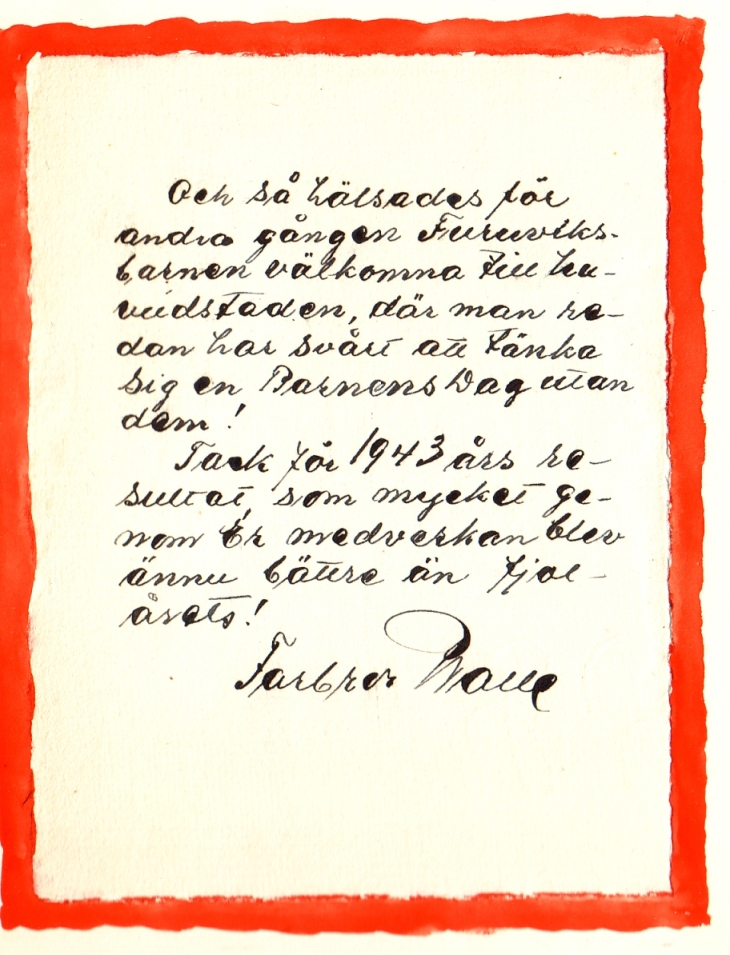 Och så hälsades för
andra gången Furuviks-
barnen välkomna till hu-
vudstaden, där man re-
dan har svårt att tänka
sig en Barnens Dag utan
dem!
Tack för 1943 års re-
sultat, som mycket ge-
nom Er medverkan blev
ännu bättre än fjol-
årets!
Farbror